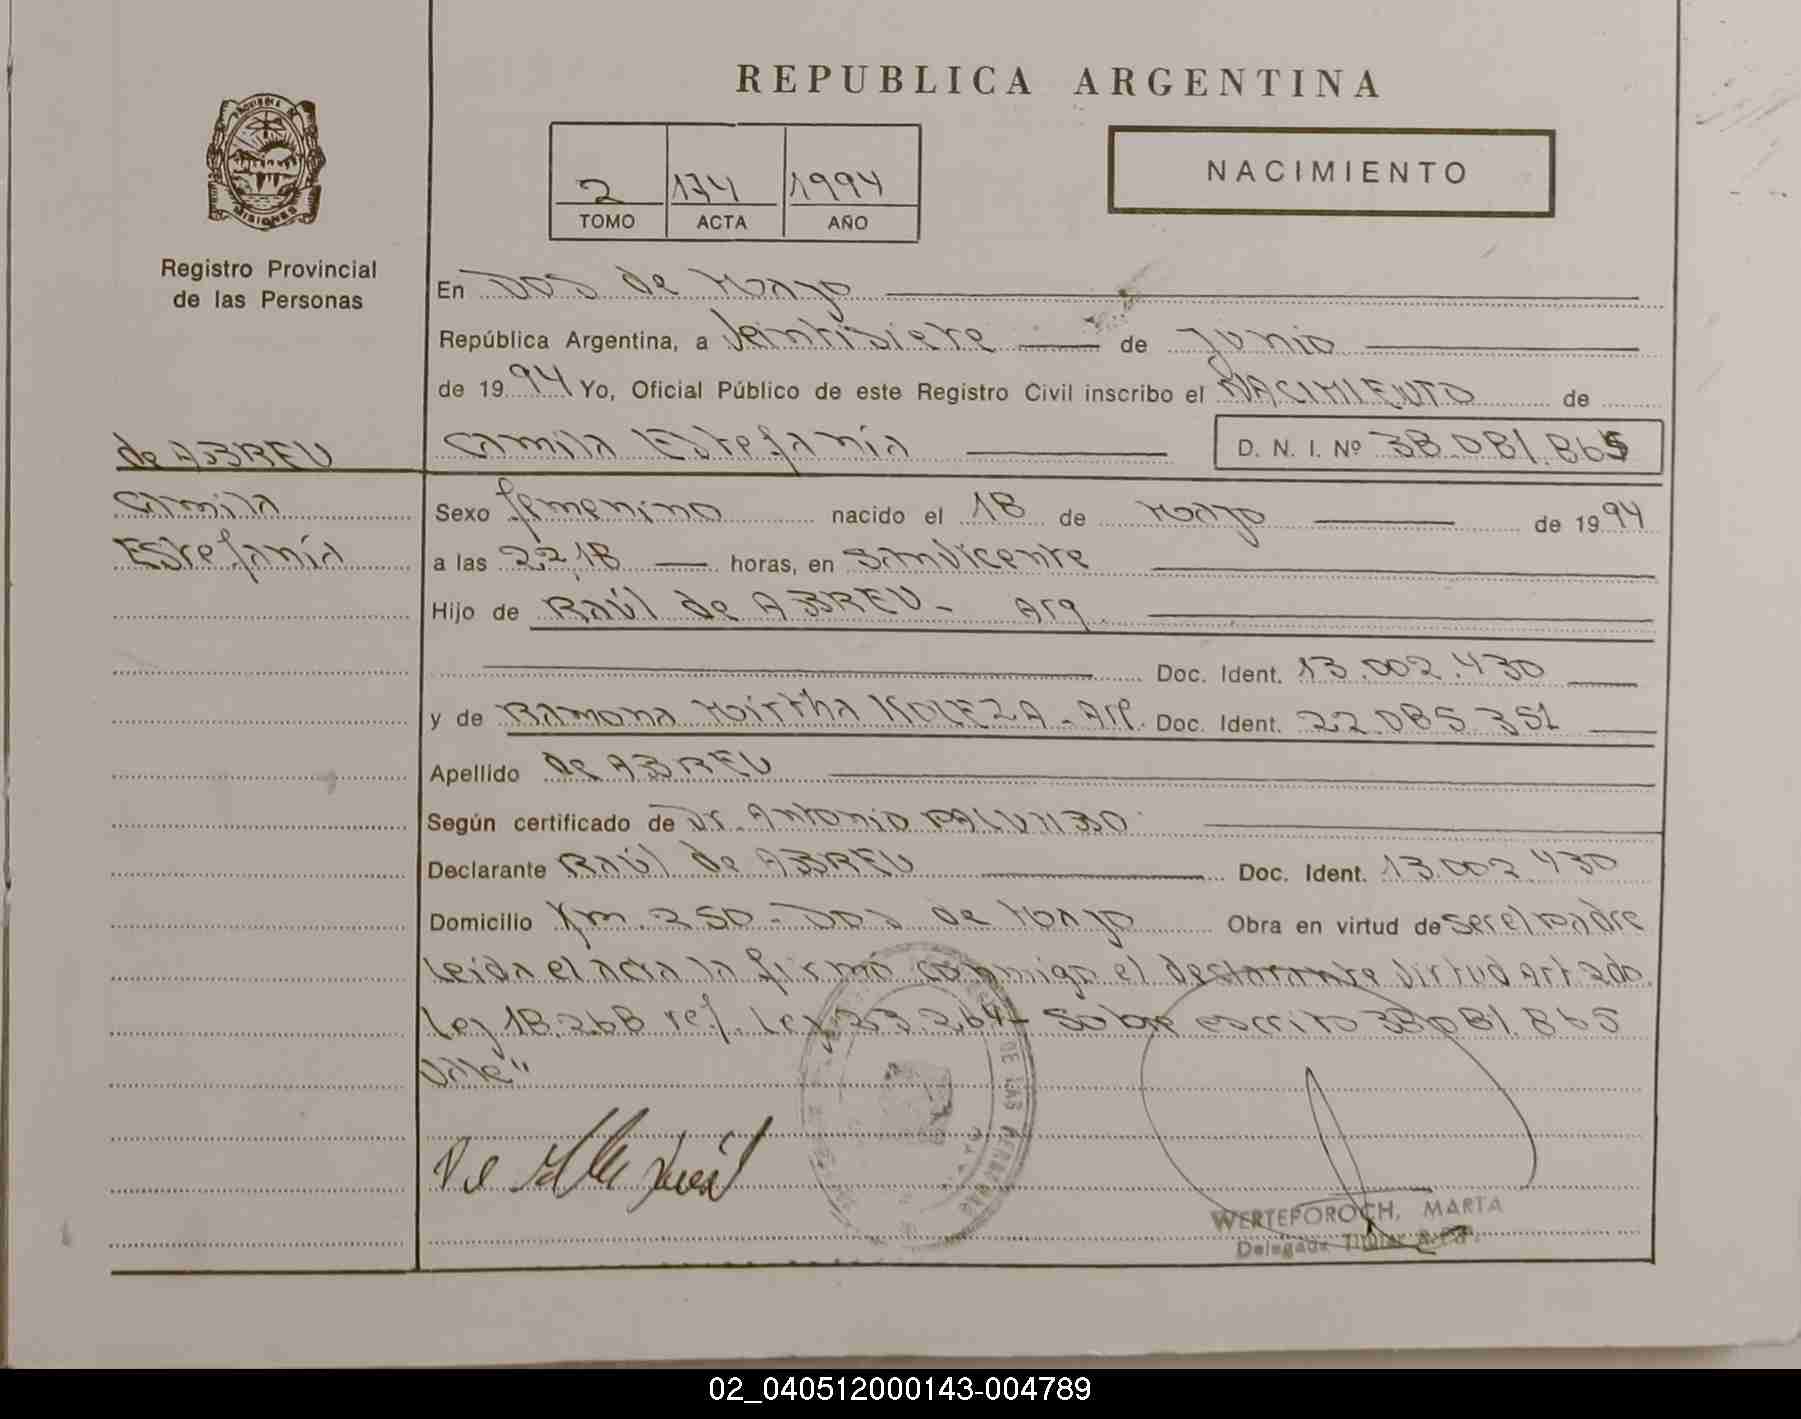 REPUBLICA ARGENTINA
2 174 1994
TOMO ACTA AÑO
NACIMIENTO
PROVINCIA DE
MISIONES
Registro Provincial
de las Personas
En Dos de Mayo
República Argentina, a Veintisiete de Junio
de 1994 Yo, Oficial Público de este Registro Civil inscribo el NACIMIENTO de
Camila Estefanía D. N. I. Nº 38.081.865
de ABREU
Camila
Estefanía
Sexo femenino nacido el 18 de Mayo de 1994
a las 22,18 horas, en San Vicente
Hijo de Raúl de ABREU - Arg.
Doc. Ident. 13.002.430
y de Ramona Mirtha - Arg. Doc. Ident. 22.085.351
Apellido de ABREU
Según certificado de Dr. Antonio
Declarante Raúl de ABREU Doc. Ident. 13.002.430
Domicilio Km. 250 - Dos de Mayo Obra en virtud de ser el Padre
Leída el acta la firmó conmigo el declarante Virtud Art 2do.
Ley 18.268 ref. Ley 23.264 - Sobre escrito 38.081.865
Vale"
DE LAS PERSONAS
WERTEPOROCH, MARTA
Delegada Titular
02_040512000143-004789